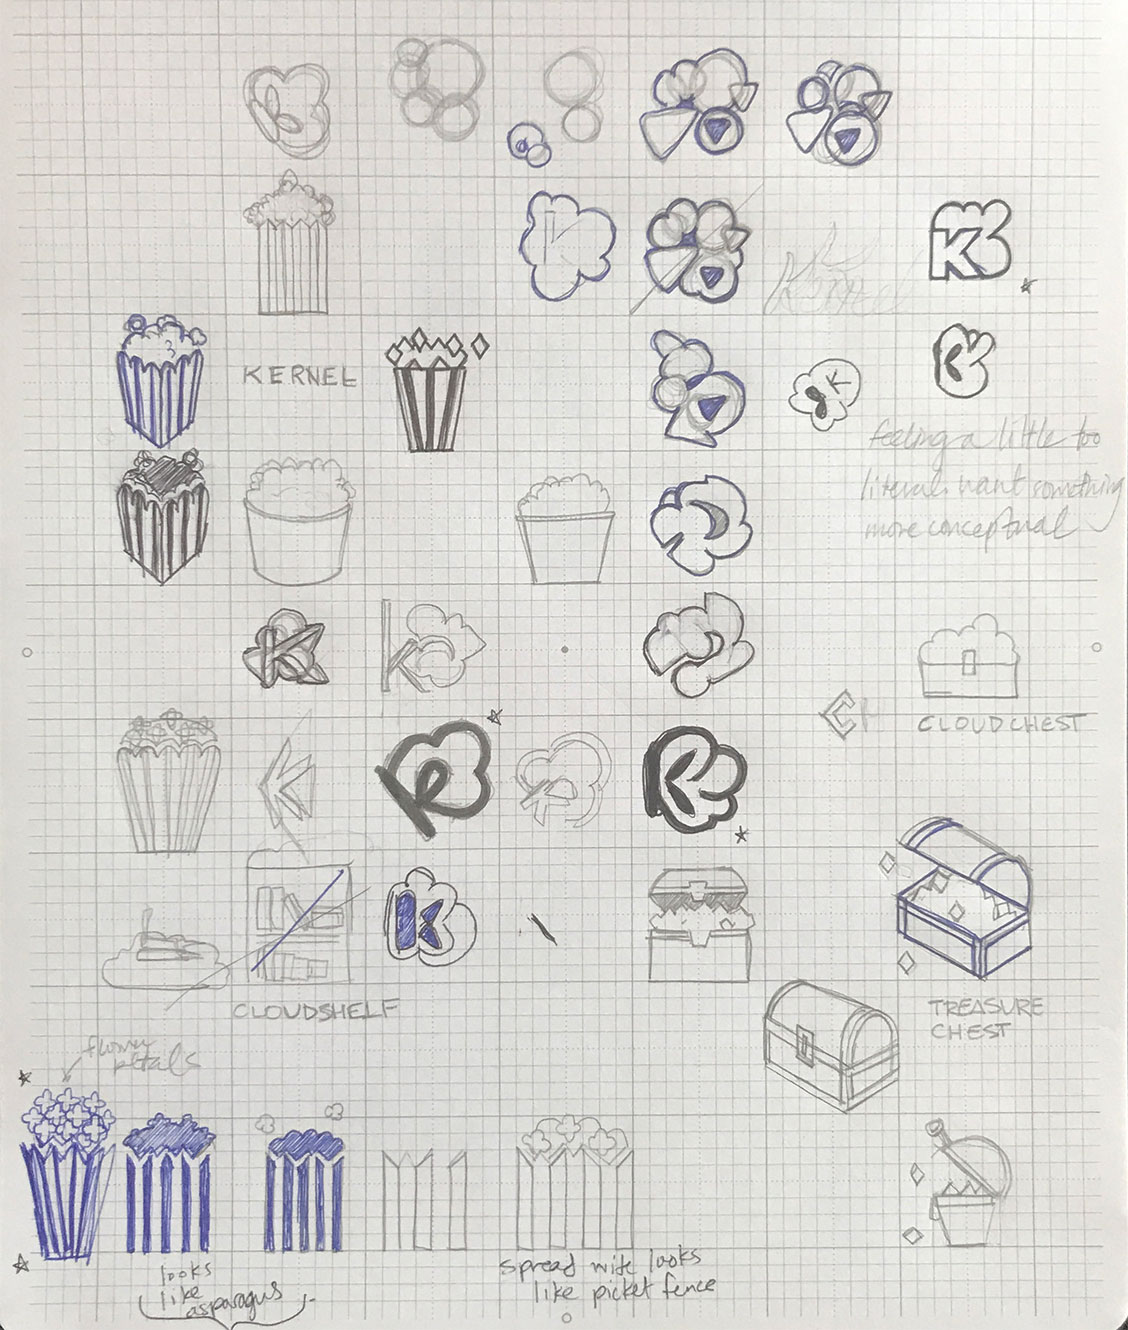 K
KERNEL
K
K
feeling a little too
literal. want something
more conceptual
K
K
CLOUDCHEST
K
K
K
K
CLOUDSHELF
TREASURE
CHEST
flower
petals
looks
like
asparagus
spread wide looks
like picket fence